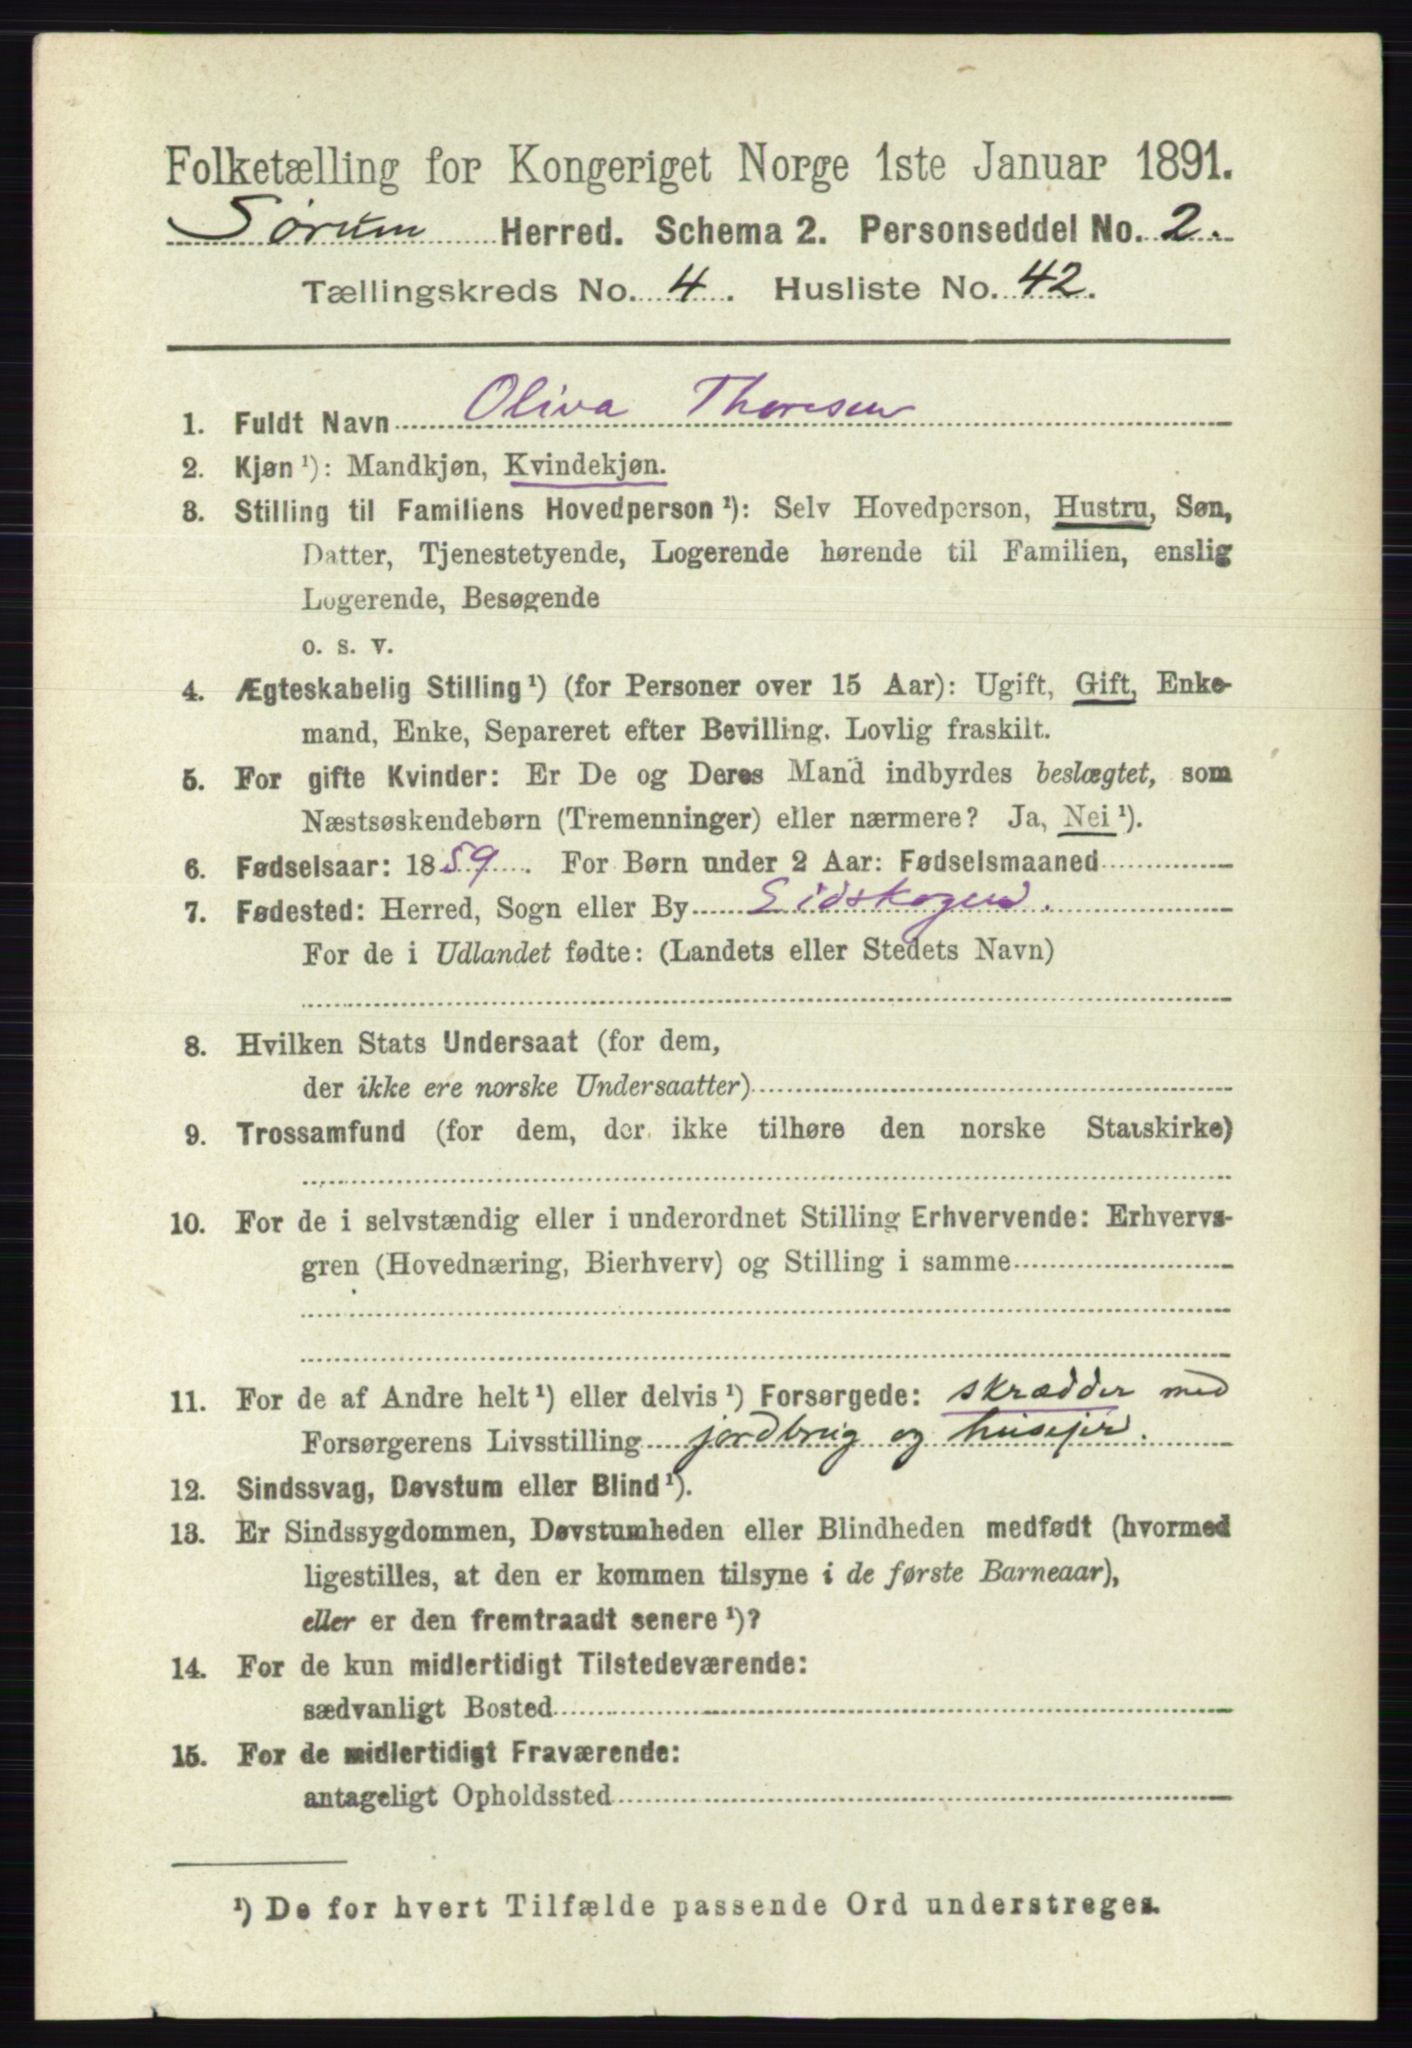 Folketælling for Kongeriget Norge 1ste Januar 1891.
Sørum Herred. Schema 2. Personseddel No. 2.
Tællingskreds No. 4. Husliste No. 42.
1. Fuldt Navn Oliva Thoresen
2. Kjøn ¹): Mandkjøn, Kvindekjøn.
3. Stilling til Familiens Hovedperson ¹): Selv Hovedperson, Hustru, Søn,
Datter, Tjenestetyende, Logerende hørende til Familien, enslig
Logerende, Besøgende
o. s. v.
4. Ægteskabelig Stilling ¹) (for Personer over 15 Aar): Ugift, Gift, Enke-
mand, Enke, Separeret efter Bevilling. Lovlig fraskilt.
5. For gifte Kvinder: Er De og Deres Mand indbyrdes beslægtet, som
Næstsøskendebørn (Tremenninger) eller nærmere? Ja, Nei ¹).
6. Fødselsaar: 1859. For Børn under 2 Aar: Fødselsmaaned
7. Fødested: Herred, Sogn eller By Eidskogen.
For de i Udlandet fødte: (Landets eller Stedets Navn)
8. Hvilken Stats Undersaat (for dem,
der ikke ere norske Undersaatter)
9. Trossamfund (for dem, der ikke tilhøre den norske Statskirke)
10. For de i selvstændig eller i underordnet Stilling Erhvervende: Erhvervs-
gren (Hovednæring, Bierhverv) og Stilling i samme
11. For de af Andre helt ¹) eller delvis ¹) Forsørgede: skrædder med
Forsørgerens Livsstilling jordbrug og husejer.
12. Sindssvag, Døvstum eller Blind ¹).
13. Er Sindssygdommen, Døvstumheden eller Blindheden medfødt (hvormed
ligestilles, at den er kommen tilsyne i de første Barneaar),
eller er den fremtraadt senere ¹)?
14. For de kun midlertidigt Tilstedeværende:
sædvanligt Bosted
15. For de midlertidigt Fraværende:
antageligt Opholdssted
¹) De for hvert Tilfælde passende Ord understreges.